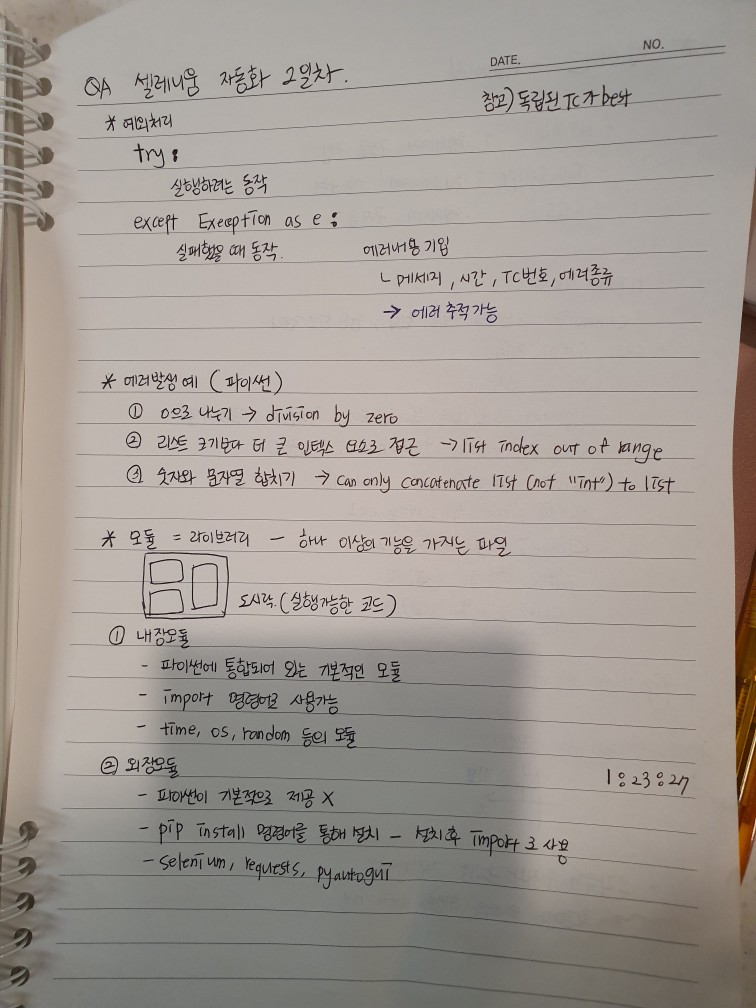 NO.
DATE.
QA 셀레니움 자동화 2일차.
참고) 독립된 TC가 best
* 예외처리
try :
실행하려는 동작
except Exeeption as e :
실패했을 때 동작.
에러내용 기입
ㄴ 메세지, 시간, TC번호, 에러종류
→ 에러 추적가능
* 에러발생 예 (파이썬)
① 0으로 나누기 → division by zero
② 리스트 크기보다 더 큰 인덱스 요소로 접근 → list index out of range
③ 숫자와 문자열 합치기 → can only concatenate list (not "int") to list
* 모듈 = 라이브러리 - 하나 이상의 기능을 가지는 파일
도시락. (실행가능한 코드)
① 내장모듈
- 파이썬에 통합되어 있는 기본적인 모듈
- import 명령어로 사용가능
- time, os, random 등의 모듈
② 외장모듈
1:23:27
- 파이썬이 기본적으로 제공 X
- pip install 명령어를 통해 설치 - 설치 후 import로 사용
- selenium, requests, pyautogui